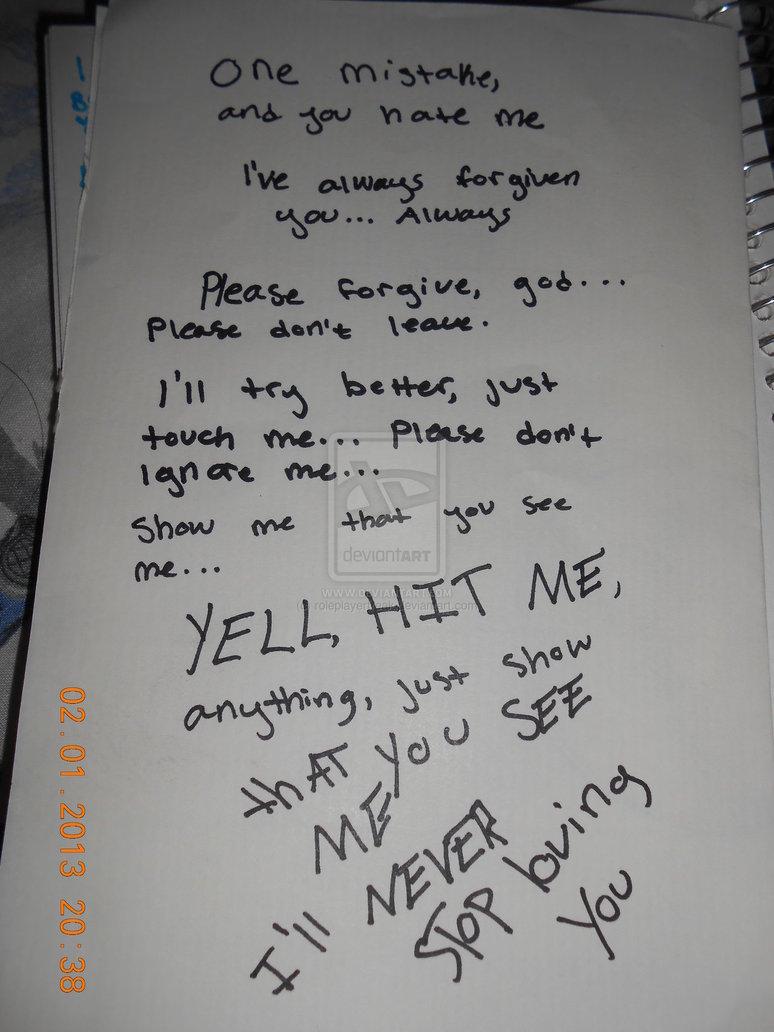 One mistake,
and you hate me
I've always forgiven
you... Always
Please forgive, god...
Please don't leave.
I'll try better, just
touch me... Please don't
Ignore me...
Show me that you see
me...
YELL, HIT ME,
anything, just show
thAT you SEE
ME
I'll NEVER
stop loving
you
deviantART
WWW.DEVIANTART.COM
02.01.2013 20:38